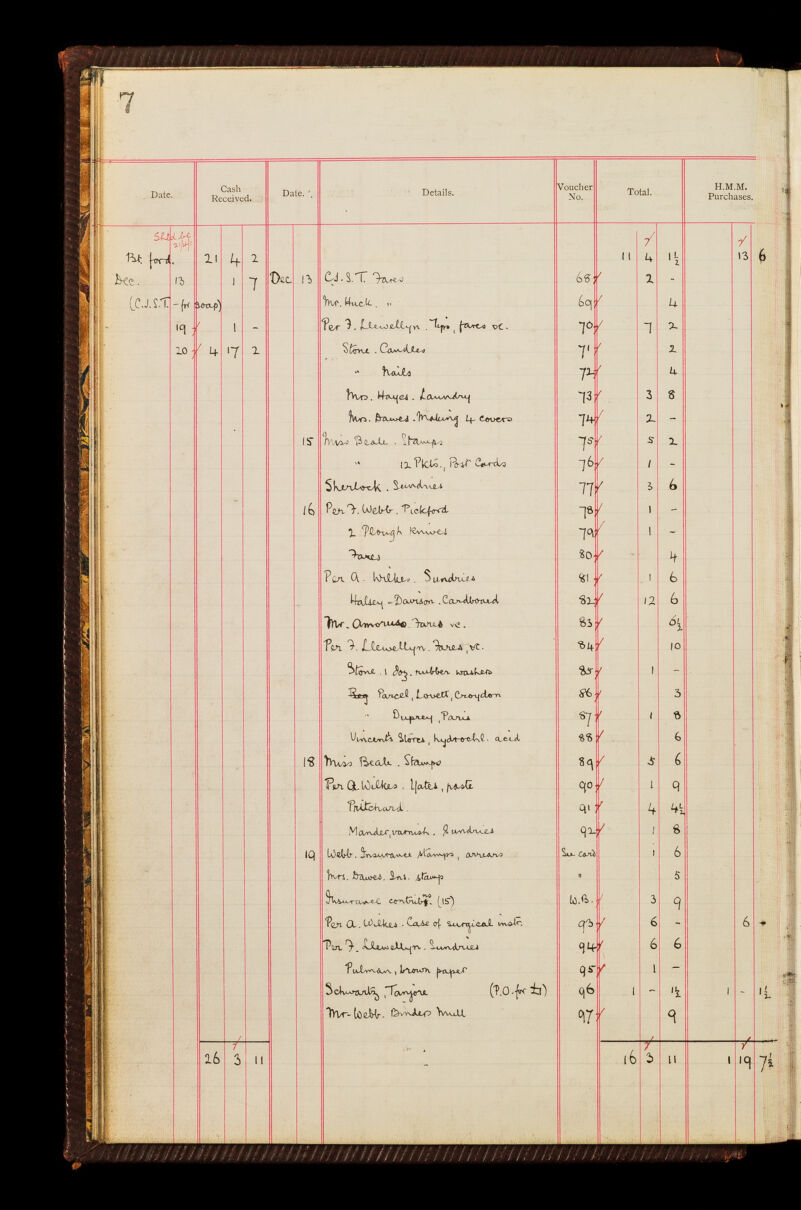 7
Date. Cash Received. Date. Details. Voucher No. Total. H.M.M. Purchases.
Bt ford. 21 4 2 11 4 1½ 13 6
Dec. 13 1 7 Dec 13 C.J.S.T. Fares 68 2 -
(C.J.S.T. - for soap) Mr. Huck. " 69 4
19 1 - Per F. Llewellyn. Tips, fares &c. 70 7 2
20 4 17 2 Stone. Candles 71 2
" Nails 72 4
Mrs. Hayes. Laundry 73 3 8
Mrs. Dawes. Making 4 covers 74 2 -
15 Miss Beale. Stamps 75 5 2
" 12 Pkts., Post Cards 76 1 -
Sherlock. Sundries 77 3 6
16 Per F. Webb. Pickford 78 1 -
2 Plough knives 79 1 -
Fares 80 4
Per A. Wilkes. Sundries 81 1 6
Halsey - Davison. Cardboard 82 12 6
Mr. Amoruso. Fares &c. 83 6½
Per F. Llewellyn. Fares, &c. 84 10
Stone. 1 doz. rubber washers 85 1 -
Parcel, Lovett, Croydon 86 3
" Duprey, Paris 87 1 8
Vincent's Stores, hydrochl. acid 88 6
18 Miss Beale. Stamps 89 5 6
Per A. Wilkes. Yates, paste 90 1 9
Pritchard. 91 4 4½
Mander, varnish. Sundries 92 1 8
19 Webb. Insurances stamps, arrears See Card 1 6
Mrs. Dawes. Ins. stamp " 5
Insurance contribns. (15) W.B. 3 9
Per A. Wilkes. Case of surgical instr. 93 6 - 6 -
Per F. Llewellyn. Sundries 94 6 6
Pulman, brown paper 95 1 -
Schwartz, Tanjore (P.O. for £1) 96 1 - 1½ 1 - 1½
Mr Webb. Binders Mull 97 9
26 3 11 16 3 11 1 19 7½